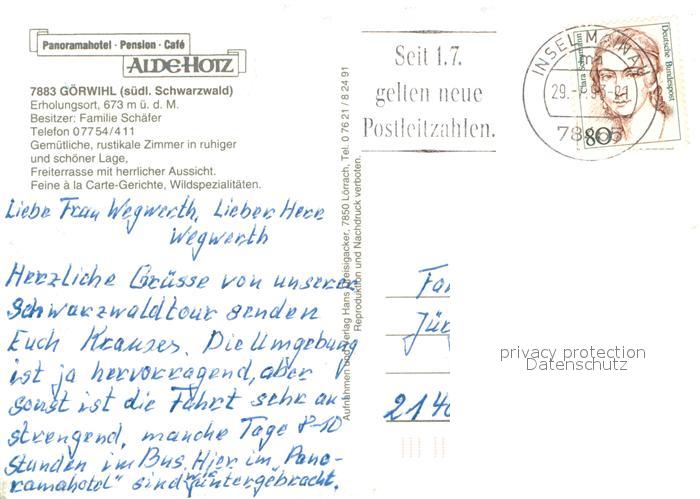 Panoramahotel · Pension · Café
ALDE HOTZ
7883 GÖRWIHL (südl. Schwarzwald)
Erholungsort, 673 m ü. d. M.
Besitzer: Familie Schäfer
Telefon 07754/411
Gemütliche, rustikale Zimmer in ruhiger
und schöner Lage,
Freiterrasse mit herrlicher Aussicht.
Feine à la Carte-Gerichte, Wildspezialitäten.
Liebe Frau Wegwerth, Lieber Herr
Wegwerth
Herzliche Grüsse von unserer
Schwarzwaldtour senden
Euch Krauses. Die Umgebung
ist ja hervorragend, aber
sonst ist die Fahrt sehr an
strengend, manche Tage 8-10
Stunden im Bus. Hier im „Pano-
ramahotel" sind wir gut untergebracht.
Aufnahmen und Verlag Hans Dreisigacker, 7850 Lörrach, Tel. 0 76 21 / 8 24 91
Reproduktion und Nachdruck verboten.
Seit 1.7.
gelten neue
Postleitzahlen.
INSEL MAINAU
29.-7.93-21
78465
Clara Schumann
Deutsche Bundespost
80
Fa
Jür
2140
privacy protection
Datenschutz